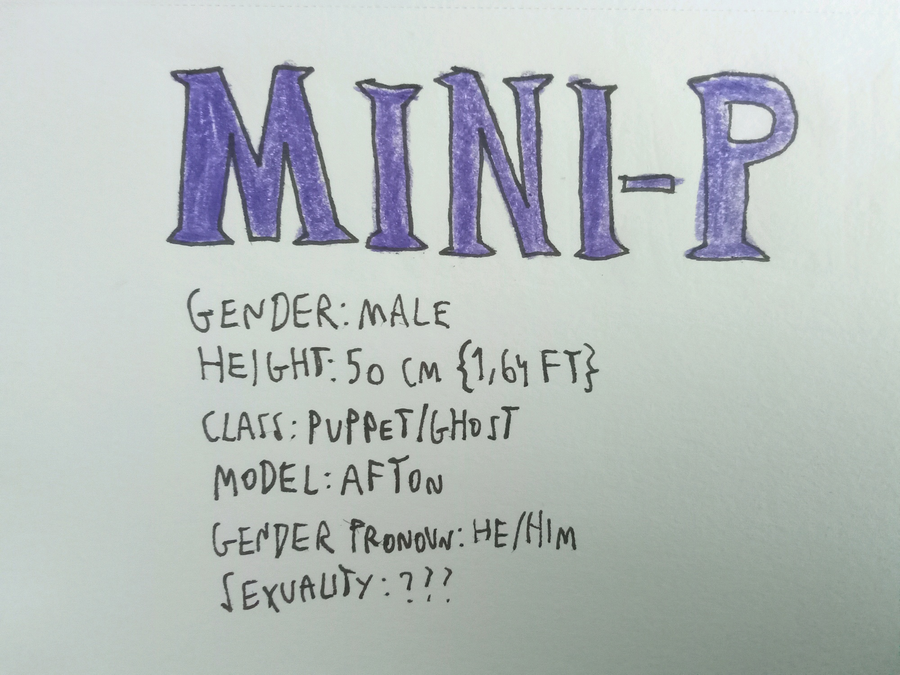 MINI-P
GENDER: MALE
HEIGHT: 50 CM {1,64 FT}
CLASS: PUPPET/GHOST
MODEL: AFTON
GENDER PRONOUN: HE/HIM
SEXUALITY: ???